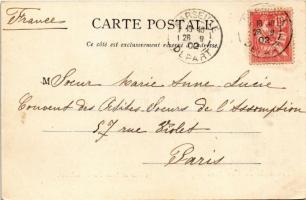 France
CARTE POSTALE
Ce côté est exclusivement réservé à l'adresse.
MARSEILLE
26 9
02
DEPART
M Soeur Marie Anne-Lucie
Couvent des Petites Soeurs de l'Assomption
57 rue Violet
Paris